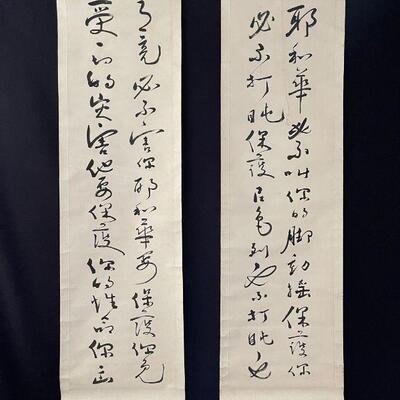 耶和華必不叫你的脚動搖保護你
必不打盹保護以色列必不打盹也
月亮必不害你耶和華要保護你免
受一切的災害他要保護你的性命你出